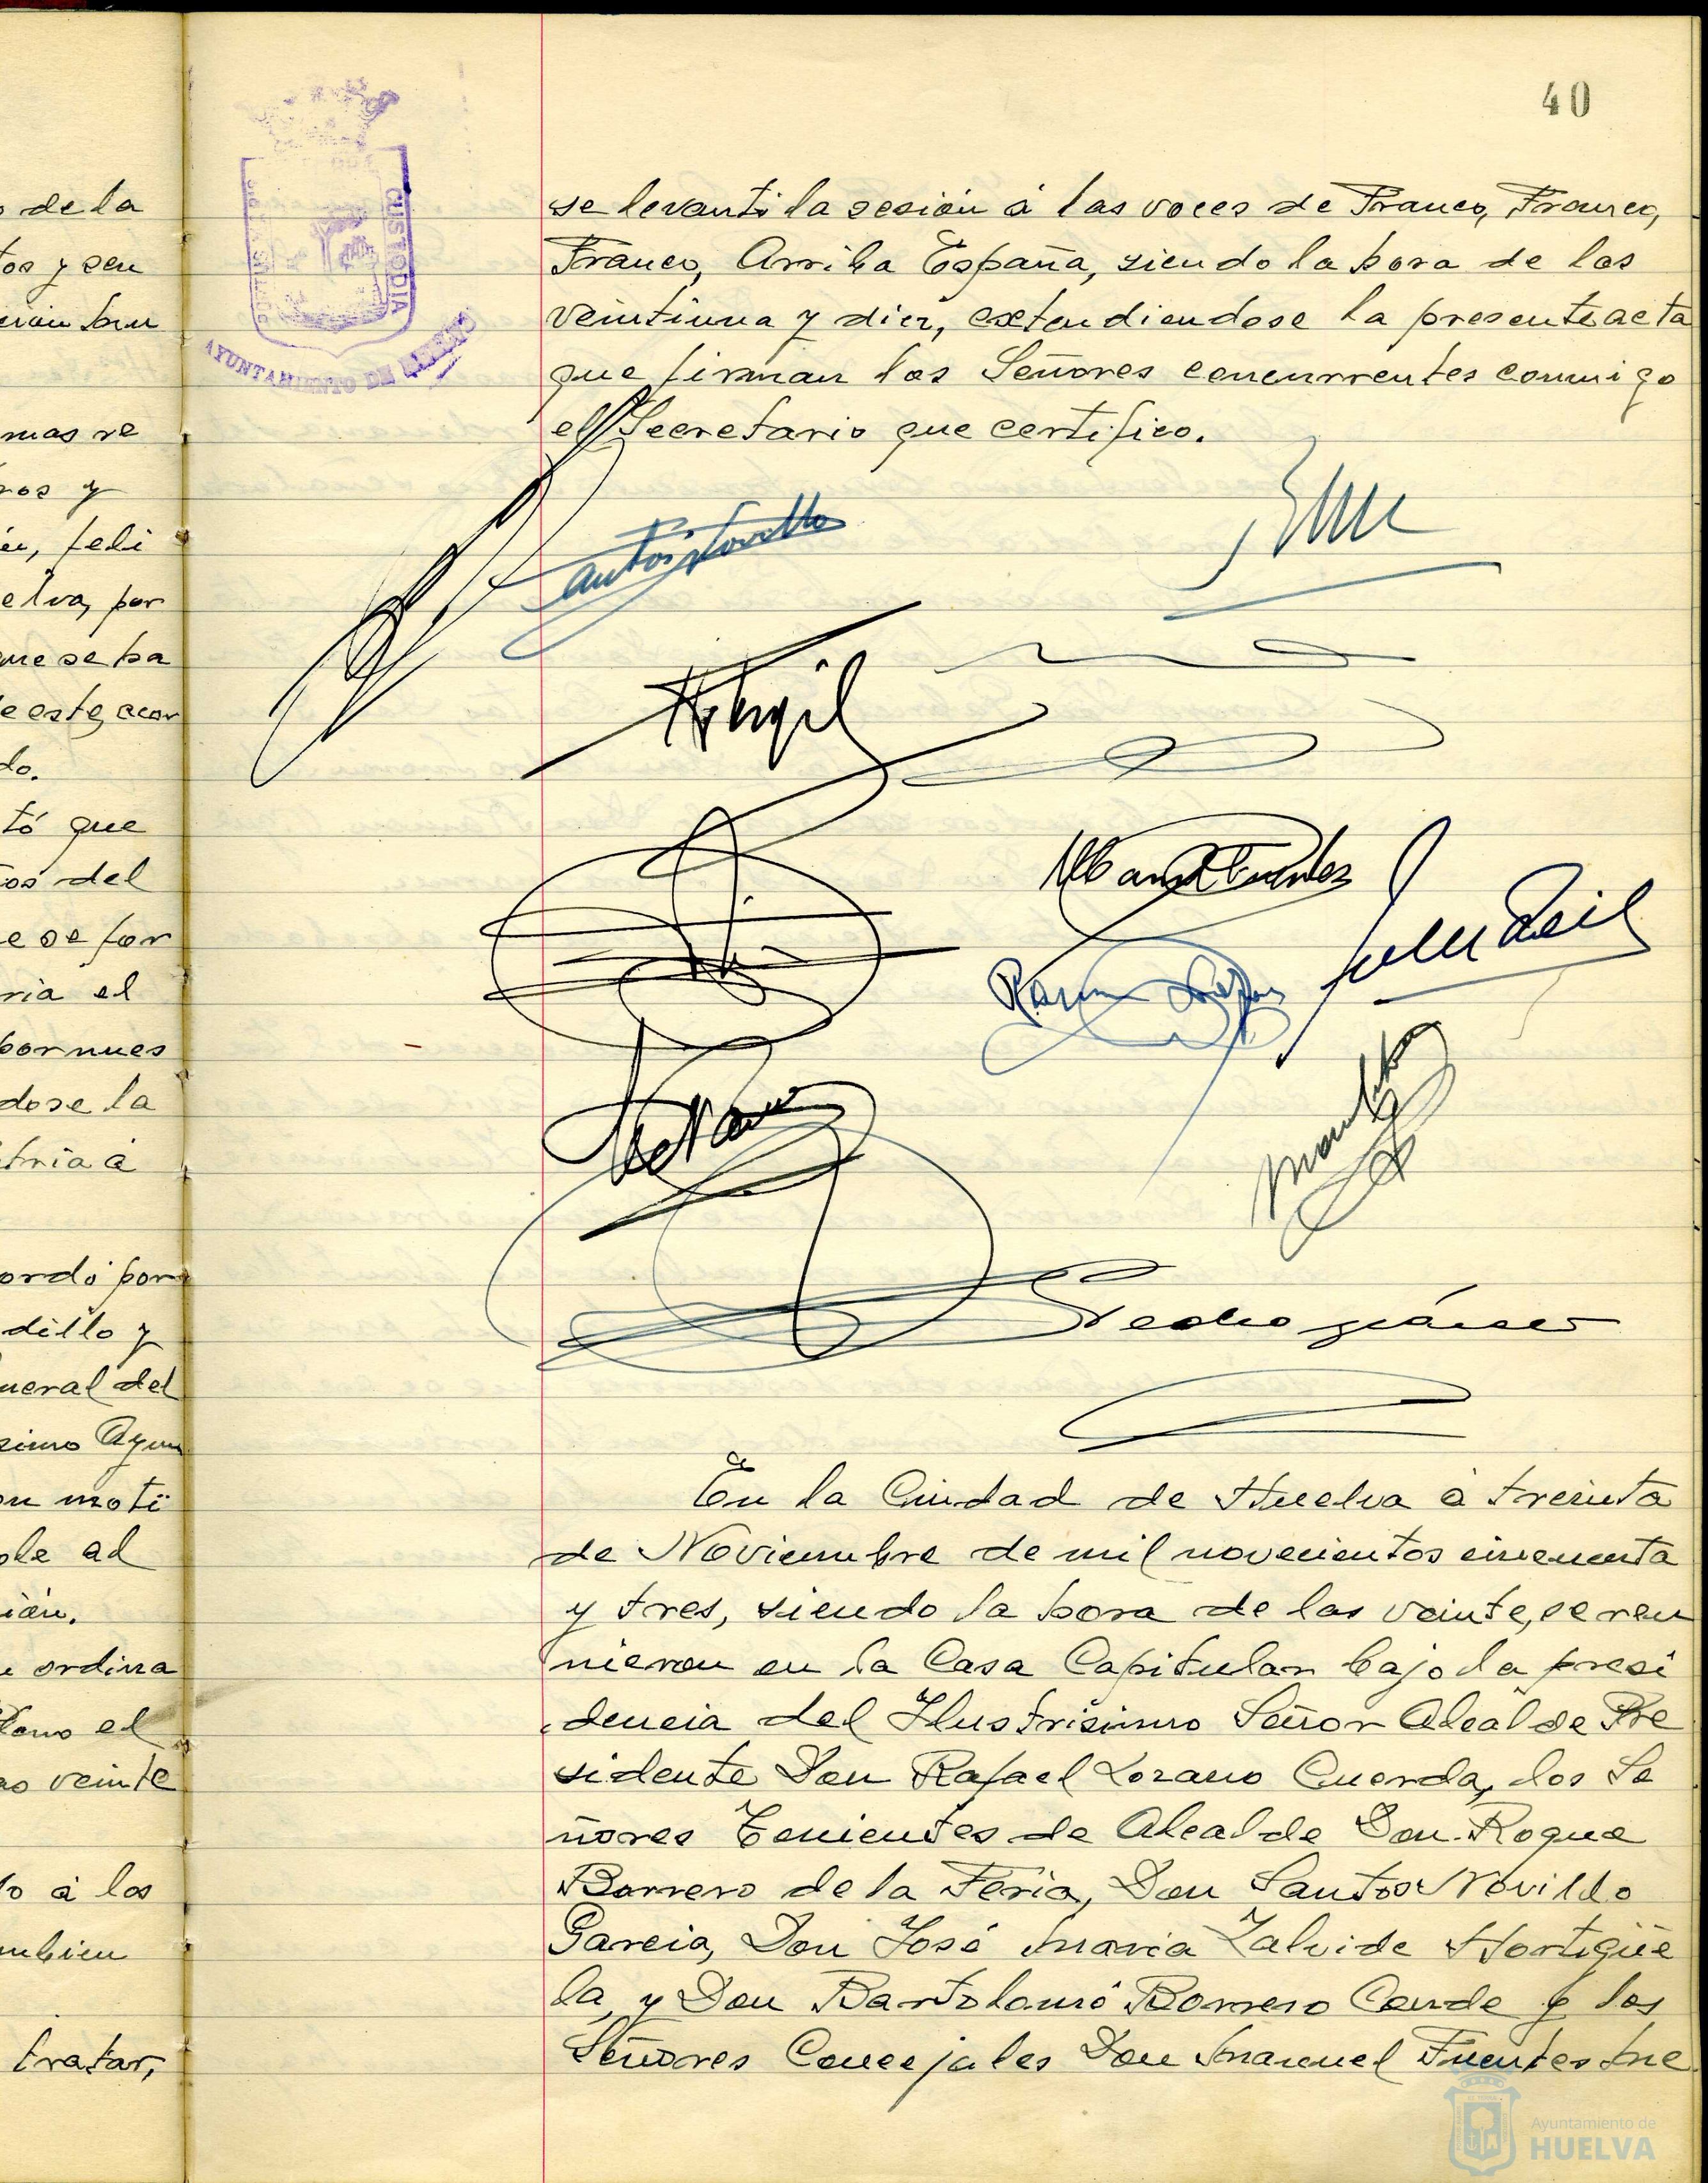 o de la
tos y seu
mas re
ros y
elva, por
que se ha
e este acor
do.
tó que
tos del
e se for
ria el
por nues
dose la
tria á
ordó por
dillo y
neral del
simo Ayun
on moti
ble al
ión.
ordina
Pleno el
veinte
á los
mbien
tratar,
40
CUSTODIA
AYUNTAMIENTO DE
se levantó la sesión á las voces de Franco, Franco,
Franco, Arriba España, siendo la hora de las
veintiuna y diez, extendiendose la presente acta
que firman los Señores concurrentes conmigo
el Secretario que certifico.
Pedro
En la Ciudad de Huelva á treinta
de Noviembre de mil novecientos cincuenta
y tres, siendo la hora de las veinte, se reu
nieron en la Casa Capitular bajo la presi
dencia del Ilustrisimo Señor Alcalde Pre
sidente Don Rafael Lozano Cuerda, los Se
ñores Tenientes de Alcalde Don Roque
Borrero de la Feria, Don Santos Novillo
Garcia, Don José Maria Zalvide Hortigüe
la, y Don Bartolomé Borrero Conde y los
Señores Concejales Don Manuel Fuentes Me
Ayuntamiento de
HUELVA